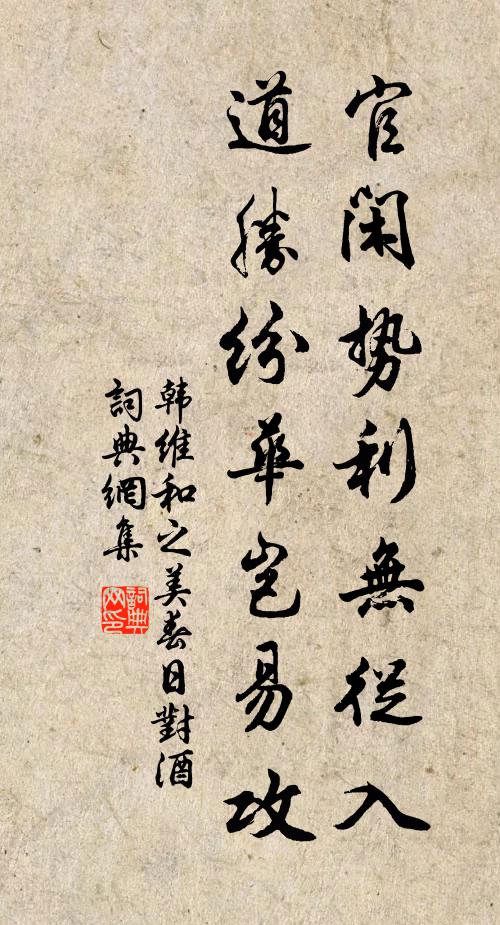 官闲势利無從入
道勝紛華岂易攻
韩維和之美春日對酒
詞典網集
詞典
网印